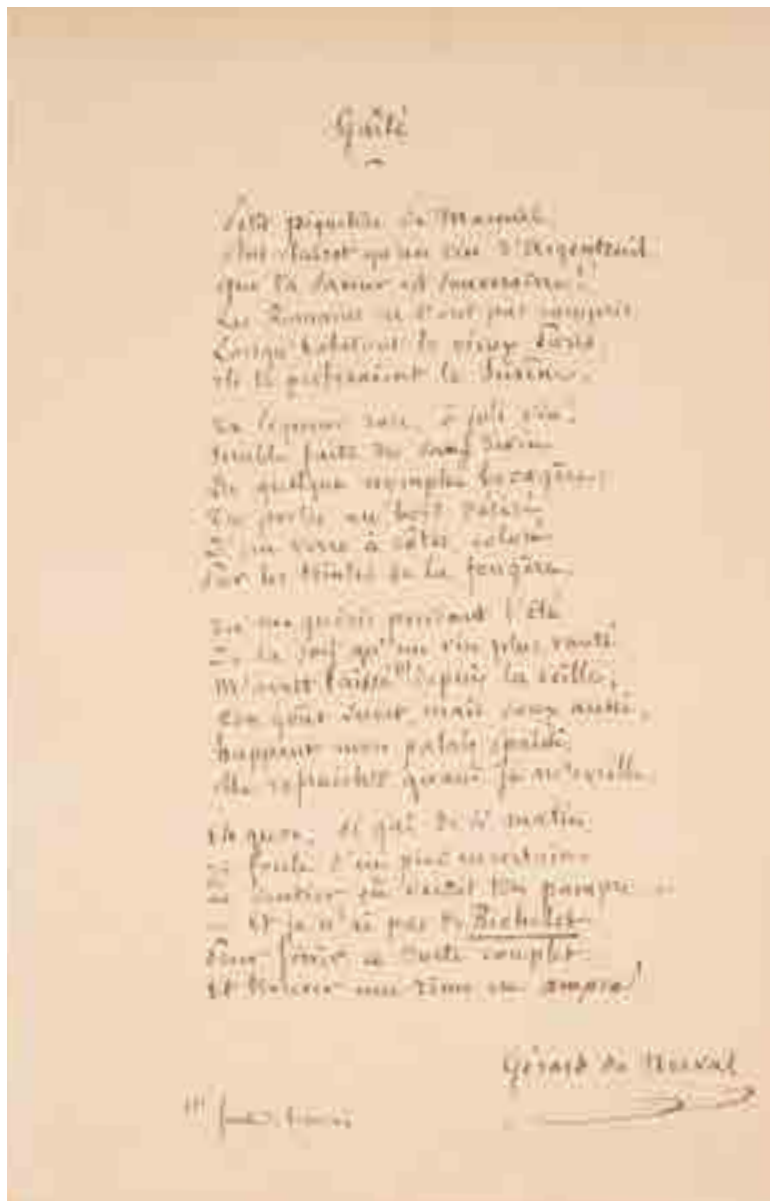 Gaîté
Petit piqueton de Mareuil,
Plus clairet qu'un vin d'Argenteuil,
Que ta saveur est souveraine!
Les Romains ne t'ont pas compris
Lorsqu'habitant le vieux Paris
Ils te préféraient le Surêne.
Ta liqueur rose, ô joli vin!
Semble faite du sang divin
De quelque nymphe bocagère;
Tu perles au bord désiré
D'un verre à côtes, coloré
Par les teintes de la fougère.
Tu me guéris pendant l'été
De la soif qu'un vin plus vanté
M'avait laissé depuis la veille;
Ton goût suret, mais doux aussi,
Happant mon palais épaissi,
Me rafraîchit quand je m'éveille.
Eh quoi! si gai dès le matin,
Je foule d'un pied incertain
Le sentier où verdit ton pampre...
— Et je n'ai pas de Richelet
Pour finir ce docte couplet...
Et trouver une rime en ampre!
Gérard de Nerval